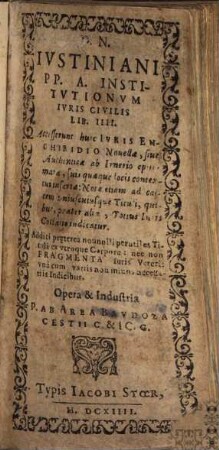 D. N.
IVSTINIANI
PP. A. INSTI-
TVTIONVM
IVRIS CIVILIS
LIB. IIII.
Accesserunt huic IVRIS EN-
CHIRIDIO Nouella, siue
Authentica ab Irnerio
suis quaque locis
inserta: Nota etiam ad
cuiuscuinque Tituli,
bus, prater alia, Totius Iuris
indicatur.
Additi præterea nonnulli perutiles Ti-
tuli ex vtroque Corpore: nec non
FRAGMENTA Iuris Veteri
cum variis
Indicibus.
Opera & Industria
P. AB AREA BAVDOZA
CESTII C. & IC. G.
Typis IACOBI STOER,
M. DCXIIII.